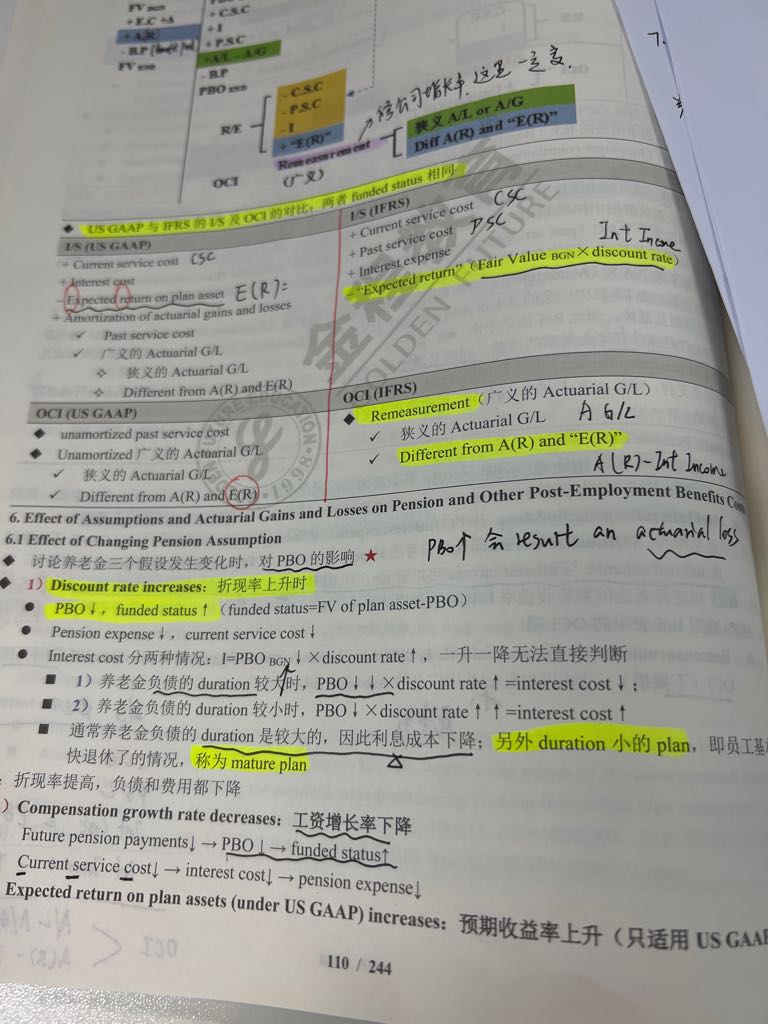 FV BGN
+E.C +Δ
+ A(R)
- B.P
FV END
+ C.S.C
+ I
+ P.S.C
+A/L - A/G
- B.P
PBO END
R/E
- C.S.C
- P.S.C
- I
+ "E(R)"
Remeasurement
OCI (广义)
狭义 A/L or A/G
Diff A(R) and "E(R)"
7.
◆ US GAAP 与 IFRS 的 I/S 及 OCI 的对比:两者 funded status 相同
I/S (US GAAP)
+ Current service cost CSC
+ Interest cost
- Expected return on plan asset E(R)=
+ Amortization of actuarial gains and losses
✓ Past service cost
✓ 广义的 Actuarial G/L
✧ 狭义的 Actuarial G/L
✧ Different from A(R) and E(R)
I/S (IFRS)
+ Current service cost CSC
+ Past service cost PSC
+ Interest expense Int Income
- "Expected return" (Fair Value BGN×discount rate)
OCI (US GAAP)
◆ unamortized past service cost
◆ Unamortized 广义的 Actuarial G/L
✓ 狭义的 Actuarial G/L
✓ Different from A(R) and E(R)
OCI (IFRS)
◆ Remeasurement (广义的 Actuarial G/L)
✓ 狭义的 Actuarial G/L A G/L
✓ Different from A(R) and "E(R)"
A(R)-Int Income
6. Effect of Assumptions and Actuarial Gains and Losses on Pension and Other Post-Employment Benefits Costs
6.1 Effect of Changing Pension Assumption
PBO↑ 会 result an actuarial loss
◆ 讨论养老金三个假设发生变化时,对 PBO 的影响 ★
◆ 1) Discount rate increases: 折现率上升时
● PBO↓, funded status↑ (funded status=FV of plan asset-PBO)
● Pension expense↓, current service cost↓
● Interest cost 分两种情况:I=PBO BGN↓×discount rate↑, 一升一降无法直接判断
■ 1) 养老金负债的 duration 较大时, PBO↓↓×discount rate↑=interest cost↓;
■ 2) 养老金负债的 duration 较小时, PBO↓×discount rate↑↑=interest cost↑
■ 通常养老金负债的 duration 是较大的, 因此利息成本下降; 另外 duration 小的 plan, 即员工基
快退休了的情况, 称为 mature plan
: 折现率提高, 负债和费用都下降
) Compensation growth rate decreases: 工资增长率下降
Future pension payments↓→PBO↓→funded status↑
Current service cost↓→interest cost↓→pension expense↓
Expected return on plan assets (under US GAAP) increases: 预期收益率上升 (只适用 US GAAP
110 / 244